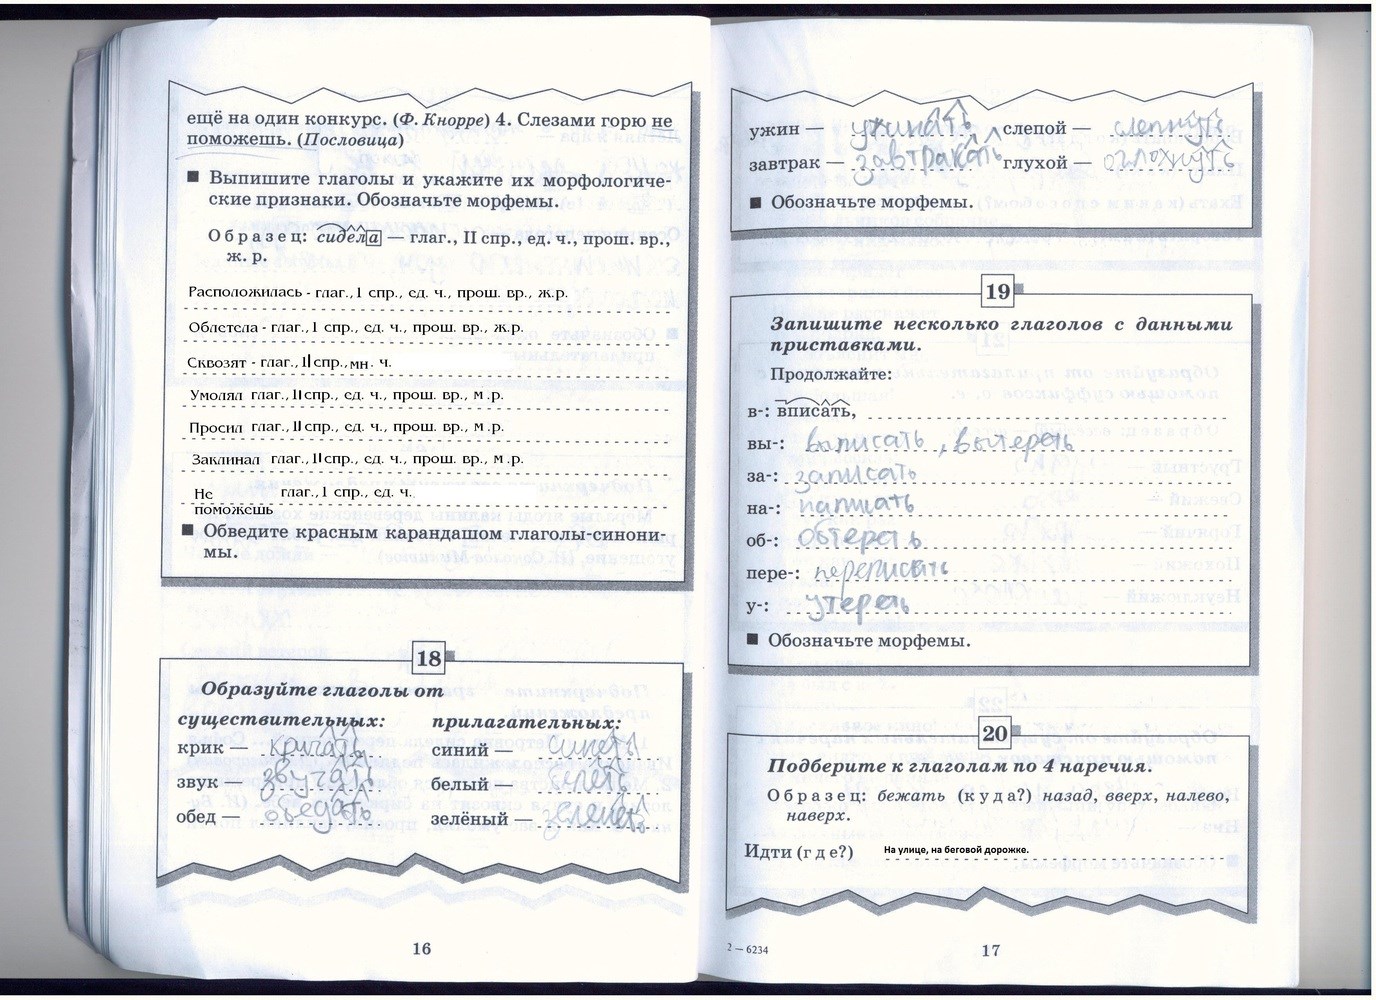 ещё на один конкурс. (Ф. Кнорре) 4. Слезами горю не
поможешь. (Пословица)
■ Выпишите глаголы и укажите их морфологиче-
ские признаки. Обозначьте морфемы.
Образец: сидела — глаг., II спр., ед. ч., прош. вр.,
ж. р.
Расположилась - глаг., I спр., ед. ч., прош. вр., ж.р.
Облетела - глаг., I спр., ед. ч., прош. вр., ж.р.
Сквозят - глаг., II спр., мн. ч.
Умолял глаг., II спр., ед. ч., прош. вр., м.р.
Просил глаг., II спр., ед. ч., прош. вр., м.р.
Заклинал глаг., II спр., ед. ч., прош. вр., м.р.
Не глаг., I спр., ед. ч.
поможешь
■ Обведите красным карандашом глаголы-синони-
мы.
18
Образуйте глаголы от
существительных: прилагательных:
крик — кричать синий — синеть
звук — звучать белый — белеть
обед — обедать зелёный — зеленеть
16
ужин — ужинать слепой — слепнуть
завтрак — завтракать глухой — оглохнуть
■ Обозначьте морфемы.
19
Запишите несколько глаголов с данными
приставками.
Продолжайте:
в-: вписать,
вы-: выписать, вытереть
за-: записать
на-: написать
об-: обтереть
пере-: переписать
у-: утереть
■ Обозначьте морфемы.
20
Подберите к глаголам по 4 наречия.
Образец: бежать (куда?) назад, вверх, налево,
наверх.
Идти (где?) На улице, на беговой дорожке.
2 — 6234
17